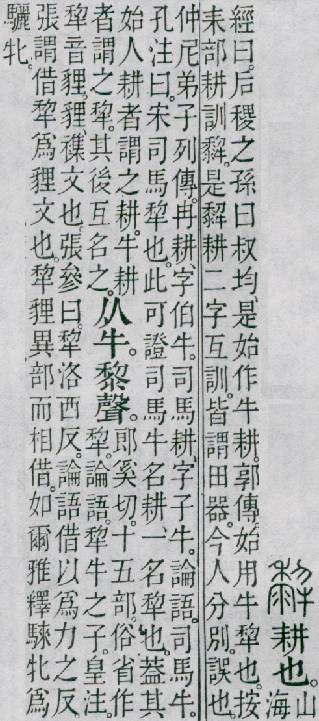 耕也。山
海
經曰。后稷之孫曰叔均。是始作牛耕。郭傳。始用牛犂也。按
耒部耕訓𤛿。是𤛿耕二字互訓。皆謂田器。今人分別。誤也。
仲尼弟子列傳。冉耕字伯牛。司馬耕字子牛。論語司馬牛。
孔注曰。宋司馬犂也。此可證司馬牛名耕、一名犂也。蓋其
始人耕者謂之耕。牛耕
者謂之犂。其後互名之。
从牛。黎聲。
郎奚切。十五部。俗省作
犂。論語。犂牛之子。皇注。
犂音貍。貍襍文也。張參曰。犂洛西反。論語借以爲力之反。
張謂借犂爲貍文也。犂貍異部而相借。如爾雅釋騋牝爲
驪牝。